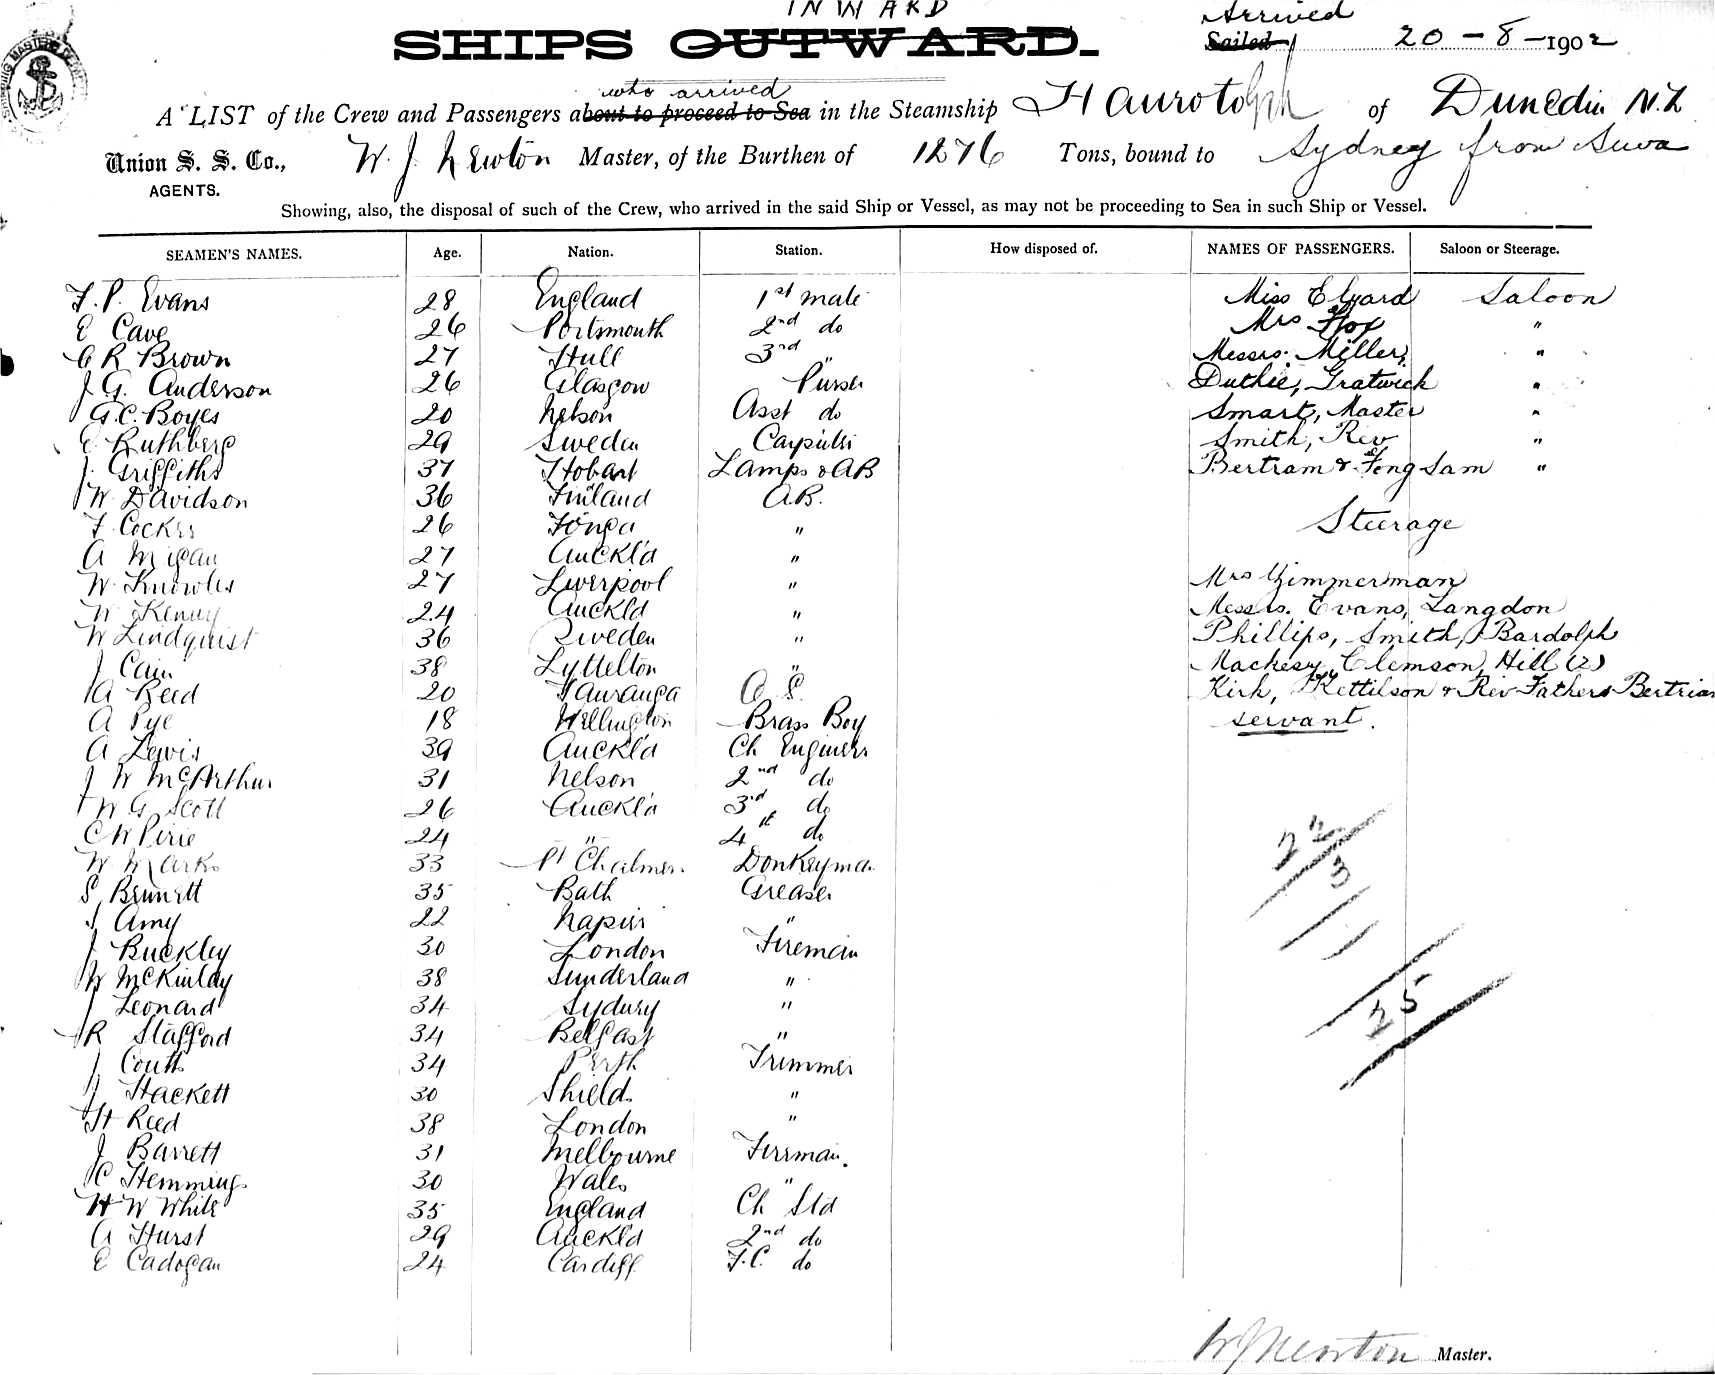 INWARD
SHIPS OUTWARD.
Arrived
Sailed 20-8-1902
who arrived
A LIST of the Crew and Passengers about to proceed to Sea in the Steamship of Dunedin N.Z
Union S. S. Co., W. J. Newton Master, of the Burthen of 1276 Tons, bound to Sydney from Suva
AGENTS.
Showing, also, the disposal of such of the Crew, who arrived in the said Ship or Vessel, as may not be proceeding to Sea in such Ship or Vessel.
SEAMEN'S NAMES. Age. Nation. Station. How disposed of. NAMES OF PASSENGERS. Saloon or Steerage.
F. P. Evans 28 England 1st mate Miss Elyard Saloon
E Cave 26 Portsmouth 2nd do Mrs "
C R Brown 27 Hull 3rd " Messrs. Miller, "
J. G. Anderson 26 Glasgow Purser Duthie, Gratwick "
G. C. Boyes 20 Nelson Asst do Smart, Master "
E Ruthberg 29 Sweden Carpenter Smith, Rev "
J. Griffiths 37 Hobart Lamps & AB Bertram & Feng Sam "
W Davidson 36 Finland A.B.
F. Cocker 26 Tonga " Steerage
A 27 Auckl'd "
W. Knowles 27 Liverpool " Mrs Zimmerman
W Kenny 24 Auckld " Messrs. Evans, Langdon
W Lindquist 36 Sweden " Phillips, Smith, Bardolph
J Cain 38 Lyttelton " Mackesy, Clemson, Hill (2)
A Reed 20 Tauranga O.S. Kirk, Kettilson & Rev Fathers Bertrian
A Pye 18 Wellington Brass Boy servant.
A Lewis 39 Auckl'd Ch Engineer
J W McArthur 31 Nelson 2nd do
W G Scott 26 Auckl'd 3rd do
C W Pirie 24 " 4th do
W Marks 33 Pt Chalmers Donkeyman
S Bennett 35 Bath Greaser
J Amy 22 Napier "
J Buckley 30 London Fireman
W McKinlay 38 Sunderland "
J Leonard 34 Sydney "
R Stafford 34 Belfast "
J Coutts 34 Perth Trimmer
J Hackett 30 Shields "
H Reed 38 London "
J Barrett 31 Melbourne Fireman.
C Hemmings 30 Wales "
H W White 35 England Ch Std
A Hurst 29 Auckl'd 2nd do
E Cadogan 24 Cardiff F.C. do
22
3
25
W J Newton Master.